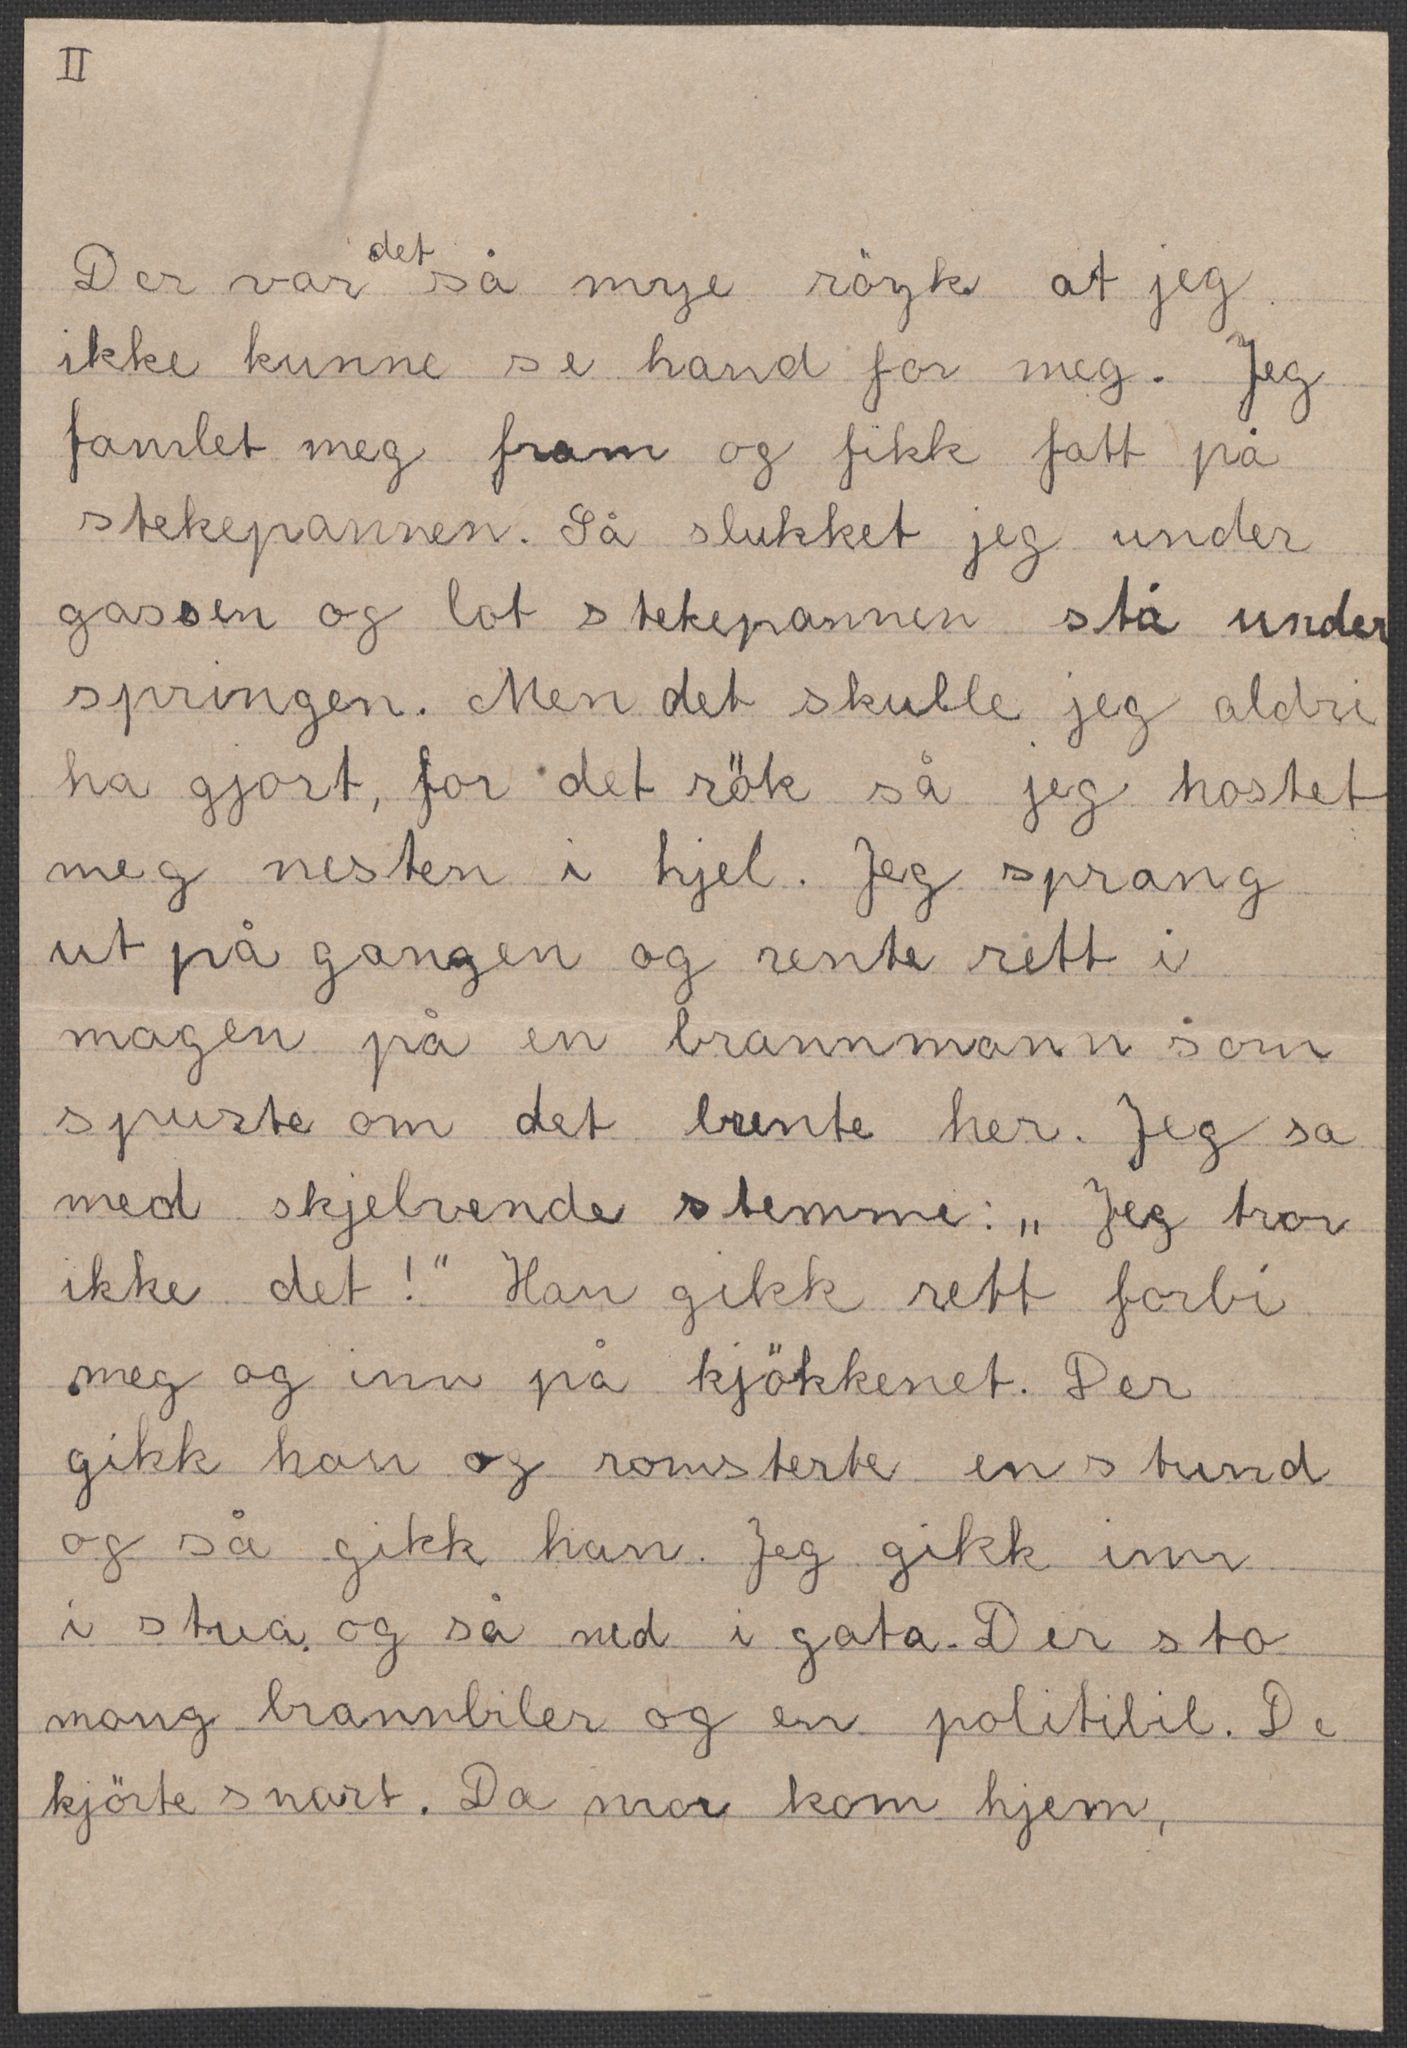 II
Der var det så mye röyk at jeg
ikke kunne se hand for meg. Jeg
famlet meg fram og fikk fatt på
stekepannen. Så slukket jeg under
gassen og lot stekepannen stå under
springen. Men det skulle jeg aldri
ha gjort, for det rök så jeg hostet
meg nesten i hjel. Jeg sprang
ut på gangen og rente rett i
magen på en brannmann som
spurte om det brente her. Jeg sa
med skjelvende stemme: „Jeg tror
ikke det!" Han gikk rett forbi
meg og inn på kjökkenet. Der
gikk han og romsterte en stund
og så gikk han. Jeg gikk inn
i stua og så ned i gata. Der sto
mang brannbiler og en politibil. De
kjörte snart. Da mor kom hjem,